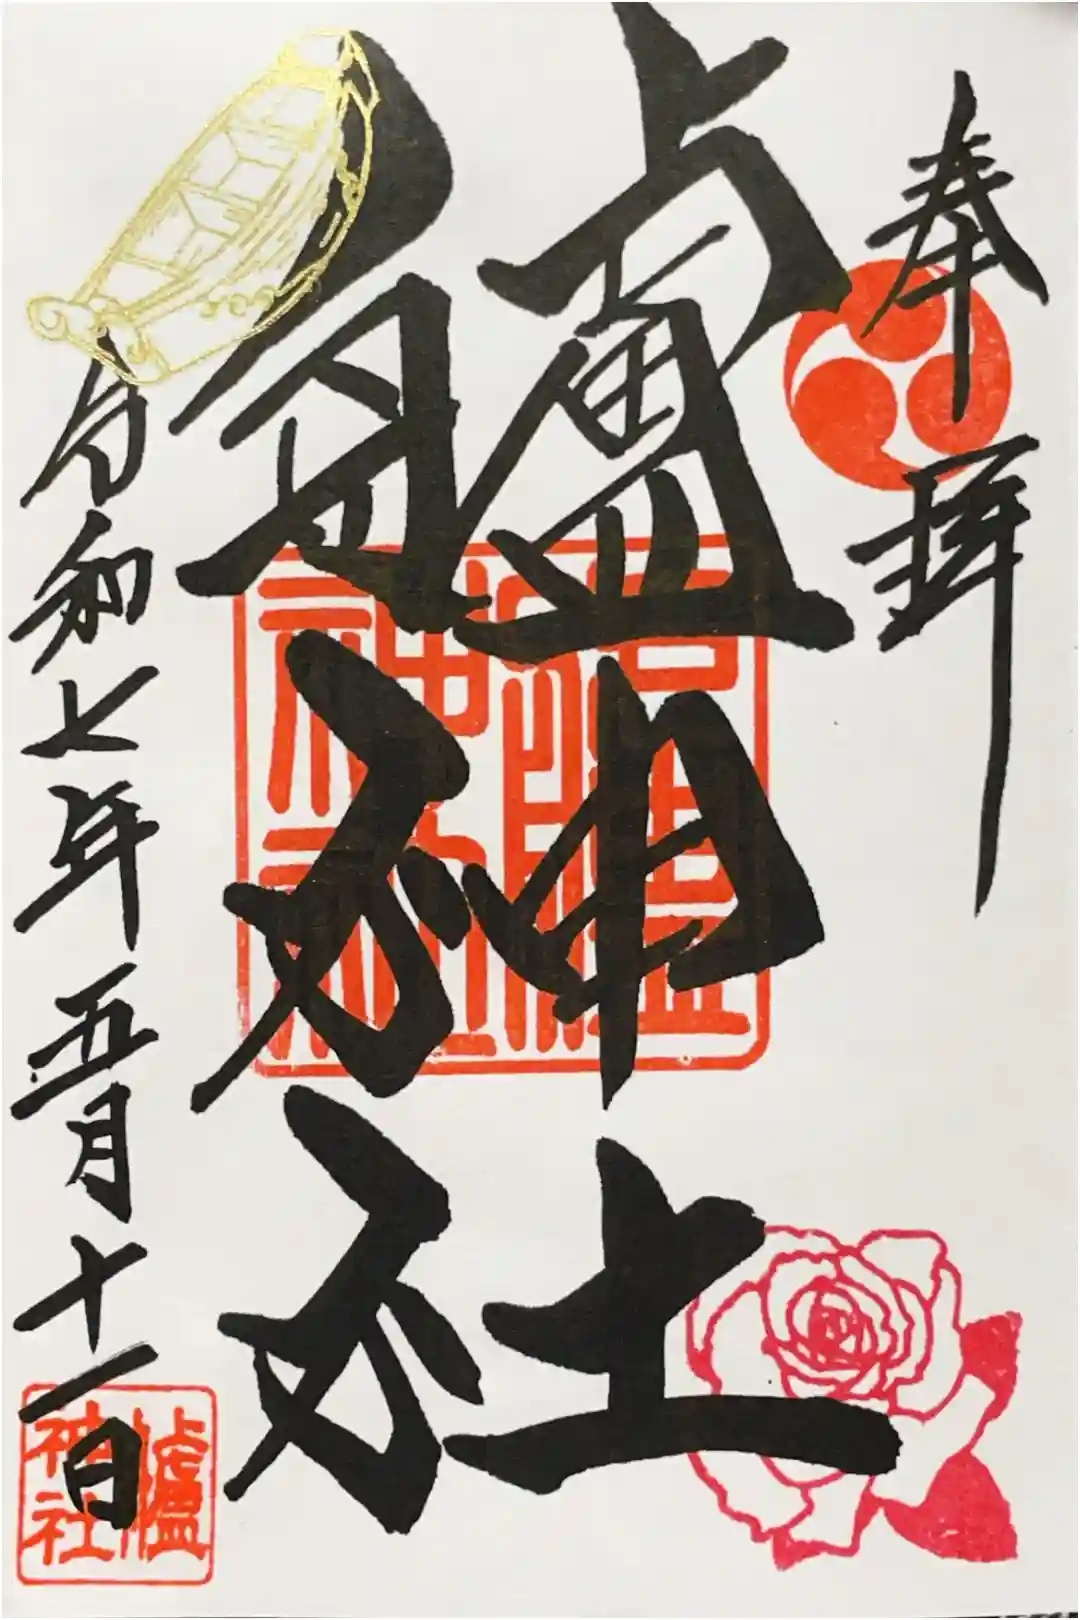 奉拝
艫神社
令和七年五月十一日
艫神社
艫神社